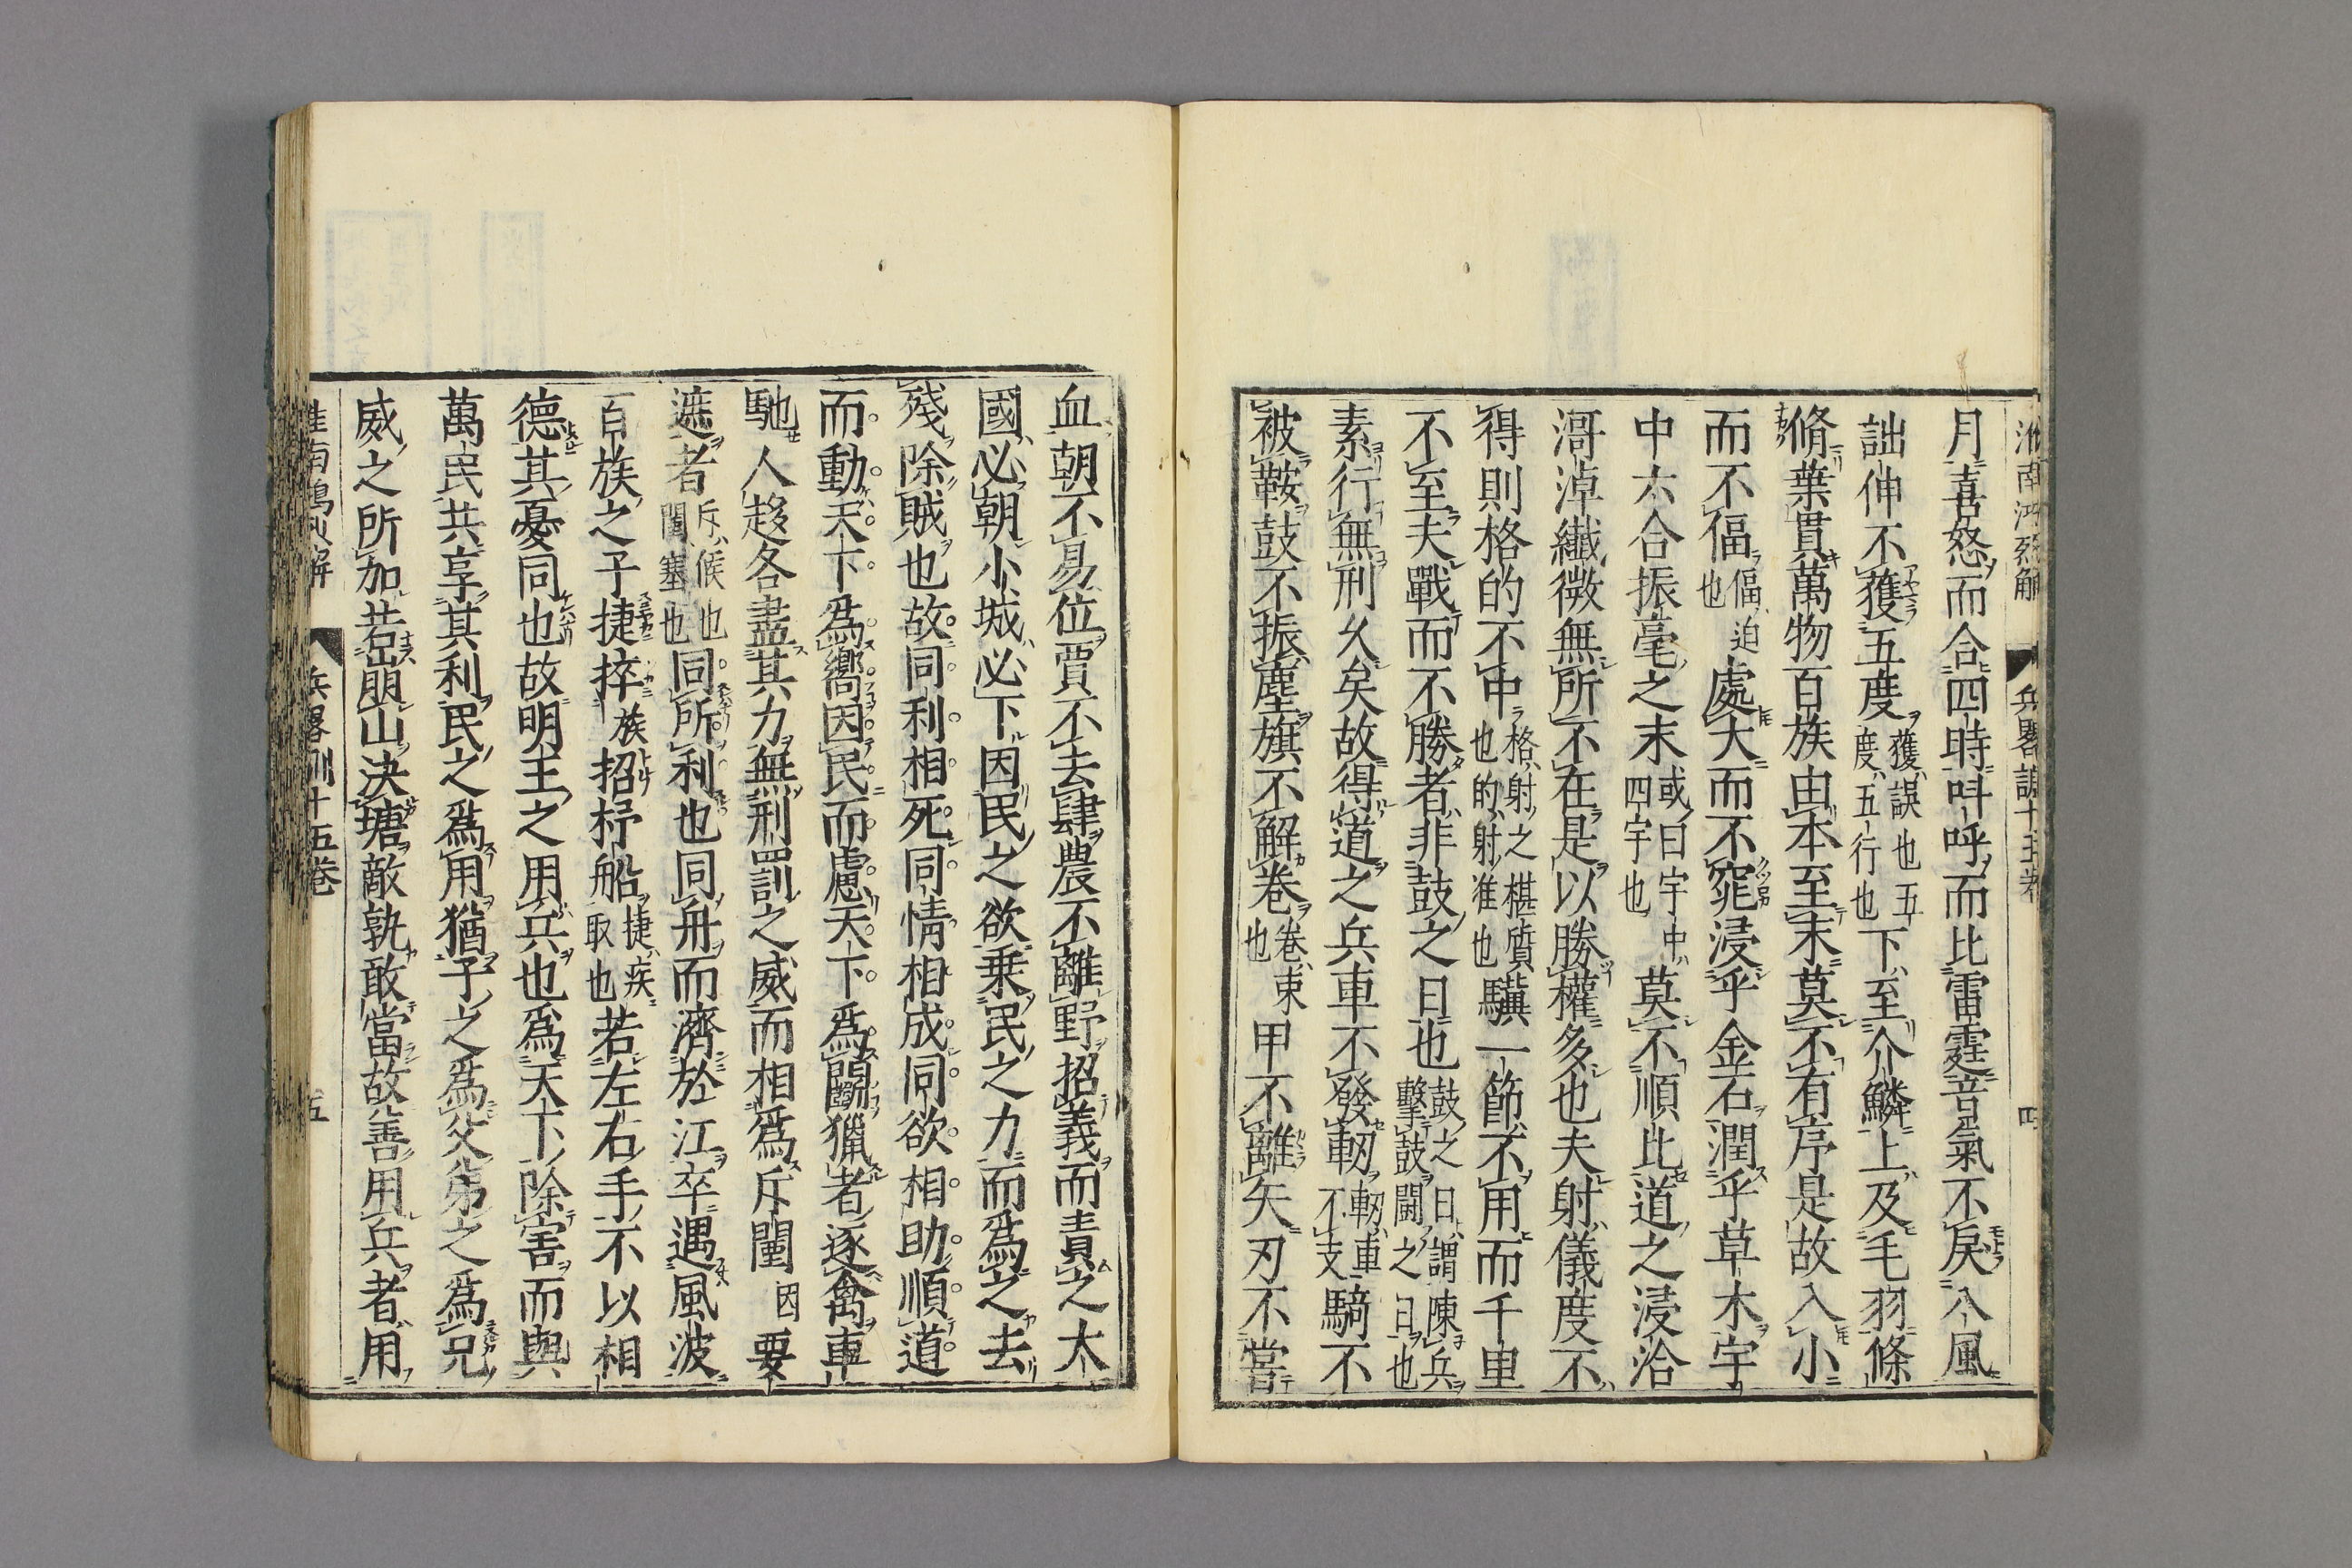 淮南鴻烈解 兵畧訓十五卷 四
月喜怒而合四時呌呼而比雷霆音氣不戾八風
詘伸不獲五度獲誤也五度五行也下至介鱗上及毛羽條
脩葉貫萬物百族由本至末莫不有序是故入小
而不偪偪迫也處大而不窕浸乎金石潤乎草木宇
中六合振毫之末或曰宇中四宇也莫不順比道之浸洽
滒淖纎微無所不在是以勝權多也夫射儀度不
得則格的不中格射之椹質也的射准也驥一節不用而千里
不至夫戰而不勝者非鼓之日也鼓之日謂陳兵擊鼓鬪之日也
素行無刑久矣故得道之兵車不發軔軔車不支騎不
被鞍鼓不振塵旗不解卷卷束也甲不離矢刃不嘗
血朝不易位賈不去肆農不離野招義而責之大
國必朝小城必下因民之欲乗民之力而爲之去
殘除賊也故同利相死同情相成同欲相助順道
而動天下爲嚮因民而慮天下爲鬭獵者逐禽車
馳人趍各盡其力無刑罰之威而相爲斥闉因要
遮者斥候也闉塞也同所利也同舟而濟於江卒遇風波
百族之子捷捽族招杼船捷疾取也若左右手不以相
德其憂同也故明王之用兵也爲天下除害而與
萬民共享其利民之爲用猶子之爲父弟之爲兄
威之所加若崩山決塘敵孰敢當故善用兵者用
淮南鴻烈解 兵畧訓十五卷 五